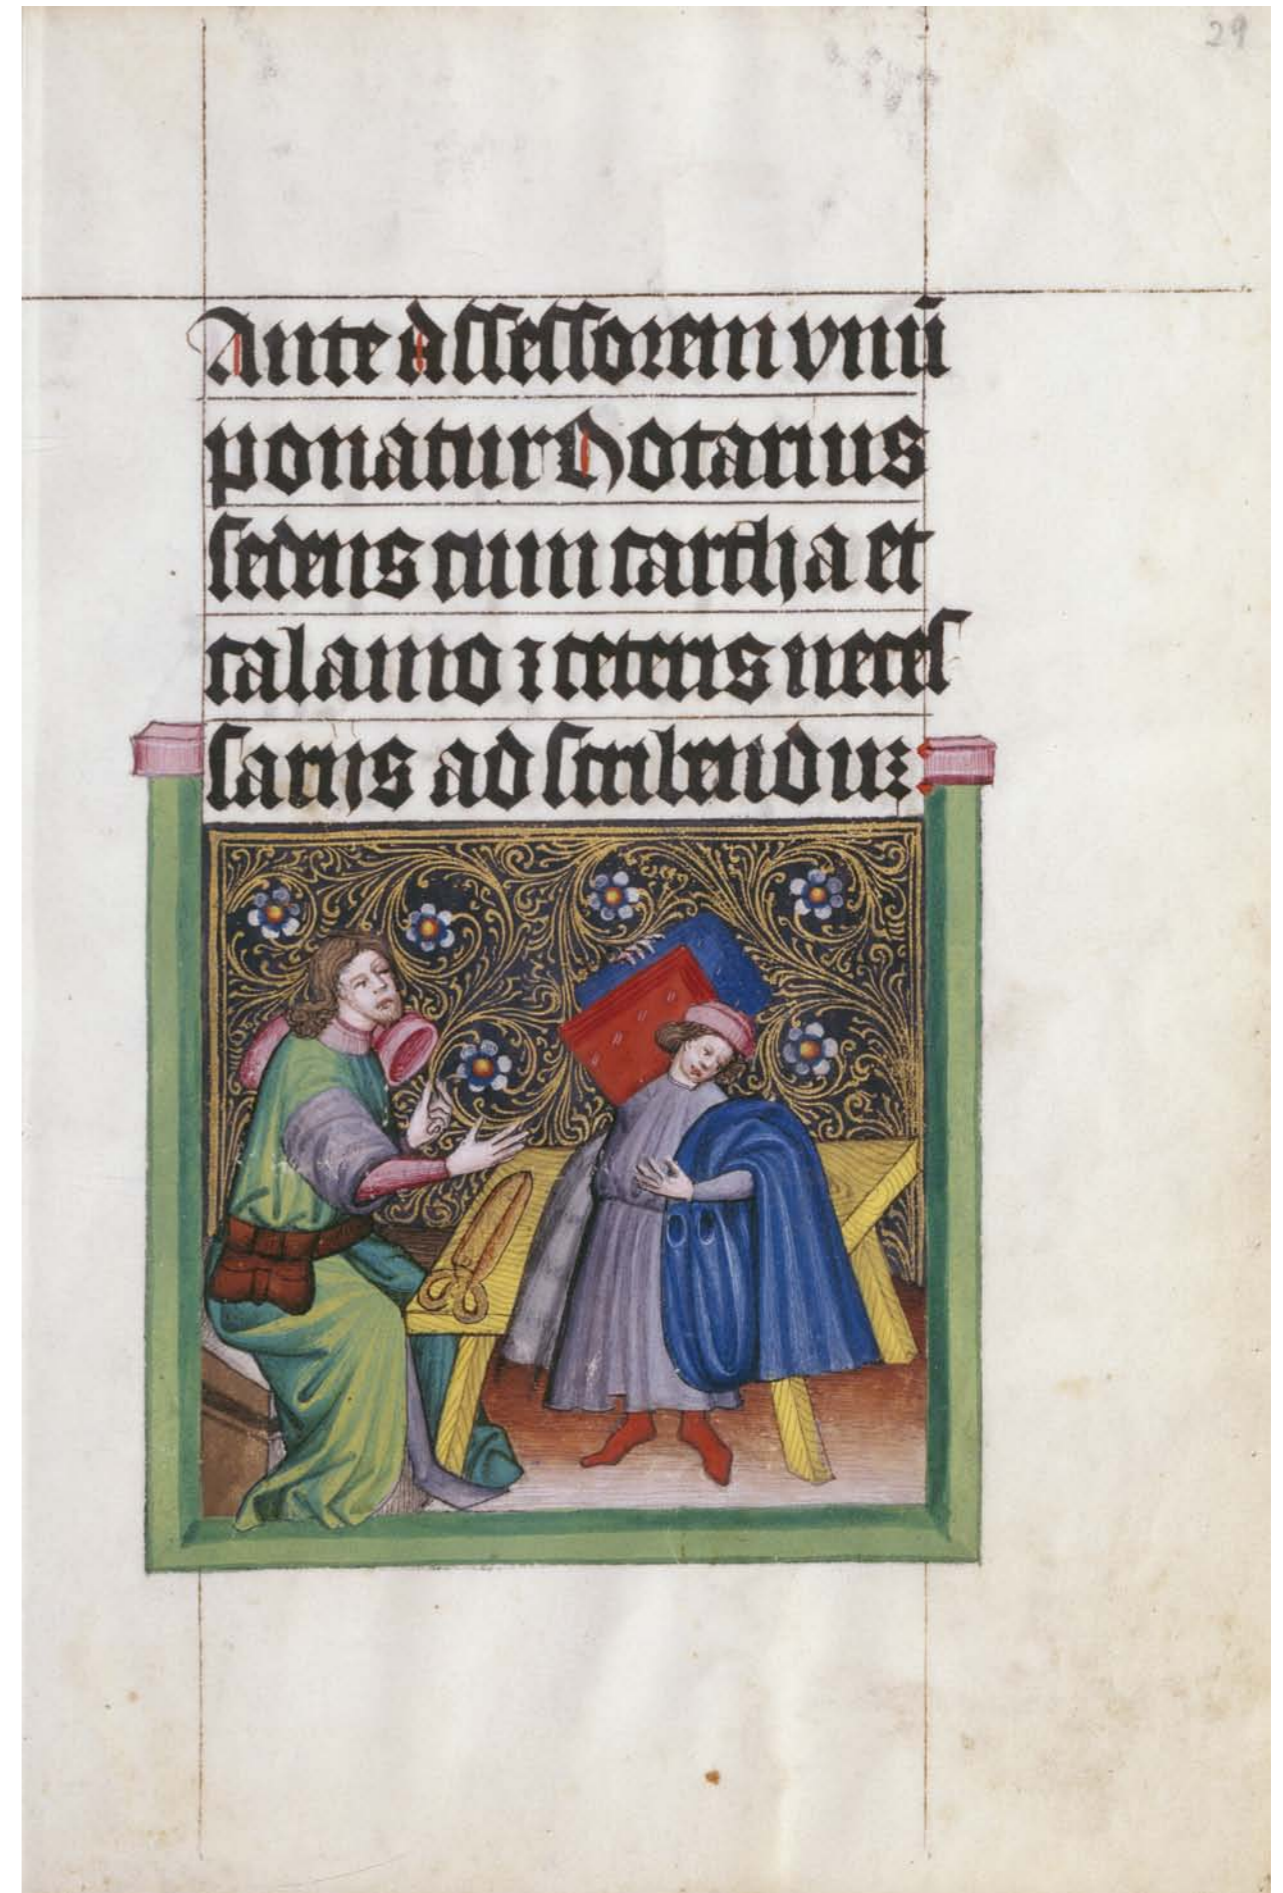 29
Ante Assessorem vnū
ponatur Notarius
sedens cum cartha et
calamo ⁊ ceteris neces
sarijs ad scribenduꝫ